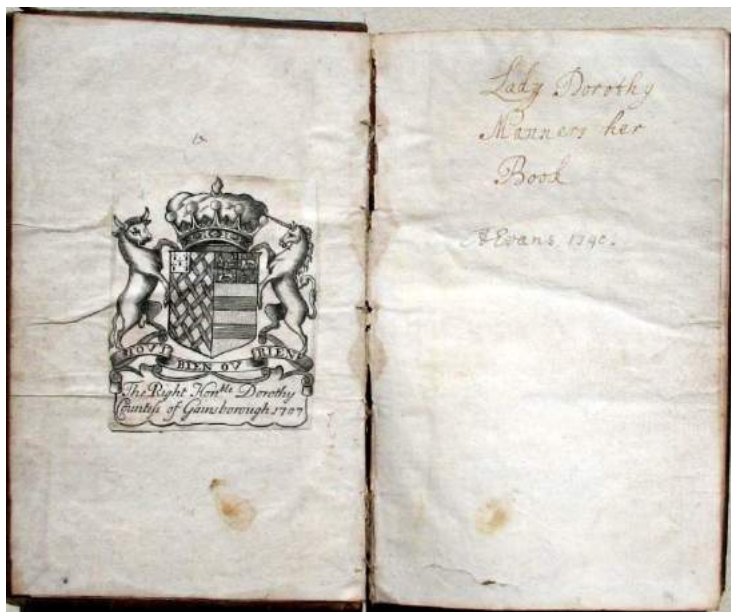 TOVT BIEN OV RIEN
The Right Honble Dorothy
Countess of Gainsborough 1707
Lady Dorothy
Manners her
Book
AEvans, 1790.